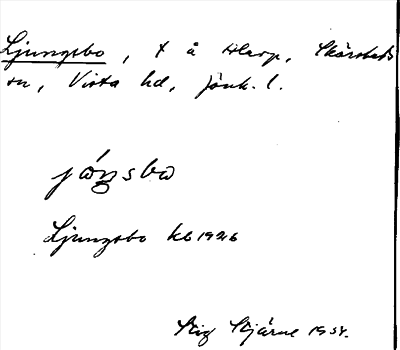 Ljungsbo, t å Harp, Skärstads
sn, Vista hd, Jönk. l.
Ljungsbo kb 1926
Stig Stjärne 1954.